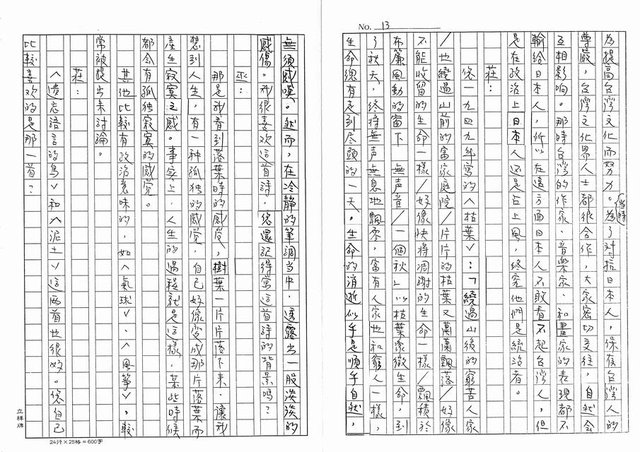 No. 13
為提高台灣文化而努力。為了對抗日本人,保存台灣人的
尊嚴,台灣文化界人士都很合作,大家密切交往,自然會
互相影響。那時台灣的作家、音樂家、和畫家的表現都不
輸給日本人,所以在這方面日本人不敢看不起台灣人,但
是在政治上日本人還是占上風,終究他們是統治者。
莊:
您一九四九年寫的〈枯葉〉:「繞過山後的窮苦人家
/也繞過山前的富家庭院/片片的枯葉又萬萬飄落/好像
不能收留的生命一樣/好像快將凋謝的生命一樣/飄積於
布簾風動的窗下 無聲音/一個秋」以枯葉象徵生命,到
了秋天,終將無声無息地飄零,富有人家也和窮人一樣,
生命總有走到尽頭的一天。生命的消逝似乎是順乎自然,
無須感嘆。然而,在冷靜的筆調當中,透露出一股淡淡的
感傷。我很喜欢這首詩,您還記得寫這首詩的背景嗎?
巫:
那是我看到落葉時的感覚,樹葉一片片落下來,讓我
想到人生,有一種孤独的感覚,自己好像变成那片落葉而
產生寂寞之感。事实上,人生的過程就是这樣,某些時候
都会有孤独寂寞的感覚。
其他比較有政治意味的,如〈氣球〉、〈風箏〉,較
常被提出來討論。
莊:
〈遺忘語言的鳥〉和〈泥土〉這兩首也很好。您自己
比較喜欢的是那一首?
24行×25格=600字
立輝牌